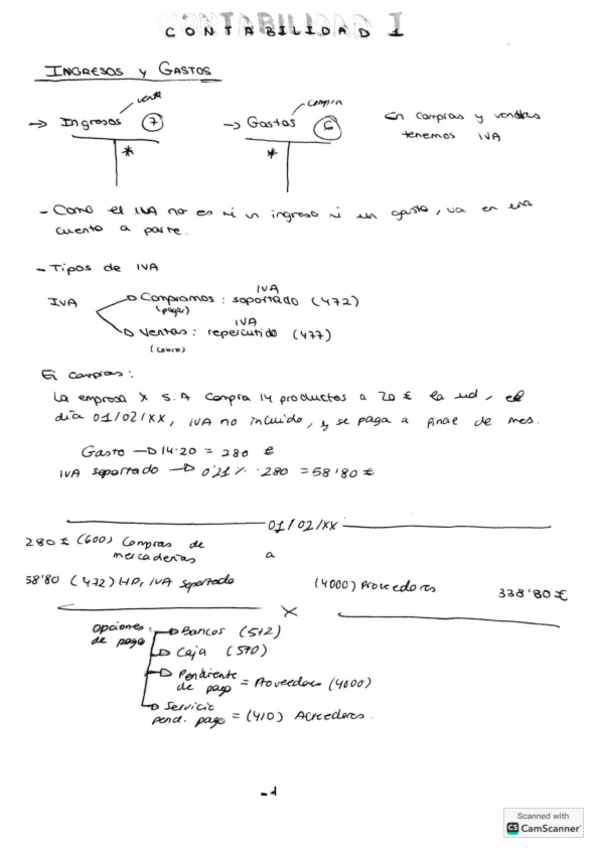 CONTABILIDAD 1
INGRESOS Y GASTOS
venta
compra
→ Ingresos 7
→ Gastos 6
En compras y ventas
tenemos IVA
*
*
- Como el IVA no es ni un ingreso ni un gasto, va en una
cuenta a parte.
- Tipos de IVA
IVA
IVA
Compramos: soportado (472)
(pagar)
IVA
Ventas: repercutido (477)
(cobro)
Ej compras:
La empresa X S.A compra 14 productos a 20 € la ud, el
día 01/02/XX, IVA no incluido, y se paga a final de mes.
Gasto → 14·20 = 280 €
IVA soportado → 0'21% · 280 = 58'80 €
01/02/XX
280 € (600) Compras de
mercaderías
a
58'80 (472) HP, IVA soportado
(4000) Proveedores
338'80 €
X
Opciones
de pago
Bancos (572)
Caja (570)
Pendiente
de pago = Proveedores (4000)
Servicio
pend. pago = (410) Acreedores.
-1
Scanned with
CS CamScanner